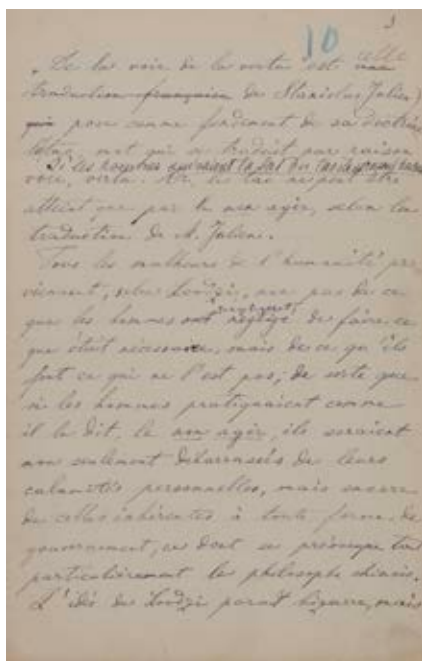 10
"De la voie de la vertu est celle
traduction française de Stanislas Julien)
qui pose comme fondement de sa doctrine
le tao, mot qui se traduit par raison
Si les hommes suivaient la loi du tao
voie, vertu. Or, le tao ne peut être
atteint que par le non agir, selon la
traduction de M. Julien.
Tous les malheurs de l'humanité pro
viennent, selon Laodzi, non pas de ce
que les hommes ont négligé négligent de faire ce
que était nécessaire, mais de ce qu'ils
font ce qui ne l'est pas; de sorte que
si les hommes pratiquaient comme
il le dit, le non agir, ils seraient
non seulement débarrassés de leurs
calamités personnelles, mais encore
de celles inhérentes à toute forme de
gouvernement, ce dont se préoccupe tout
particulièrement le philosophe chinois.
L'idée de Laodzi paraît bizarre, mais